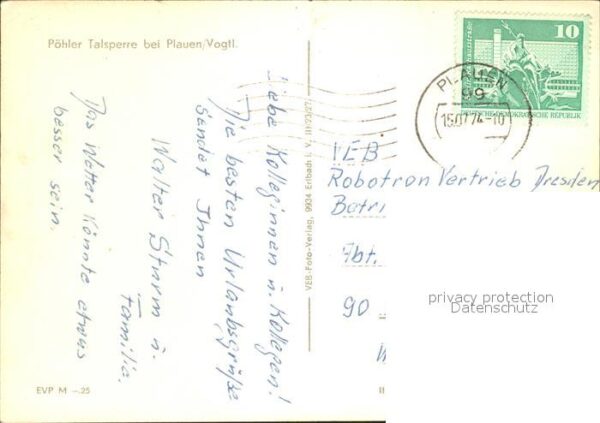 Pöhler Talsperre bei Plauen/Vogtl.
Liebe Kolleginnen u. Kollegen!
Die besten Urlaubsgrüße
sendet Ihnen
Walter Sturm u.
Familie.
Das Wetter könnte etwas
besser sein.
EVP M –.25
VEB-Foto-Verlag, 9934 Erlbach i. V.
10
PLAUEN
99
15.07.74-10
DEMOKRATISCHE REPUBLIK
VEB
Robotron Vertrieb Dresden
Betri
Abt.
90
privacy protection
Datenschutz